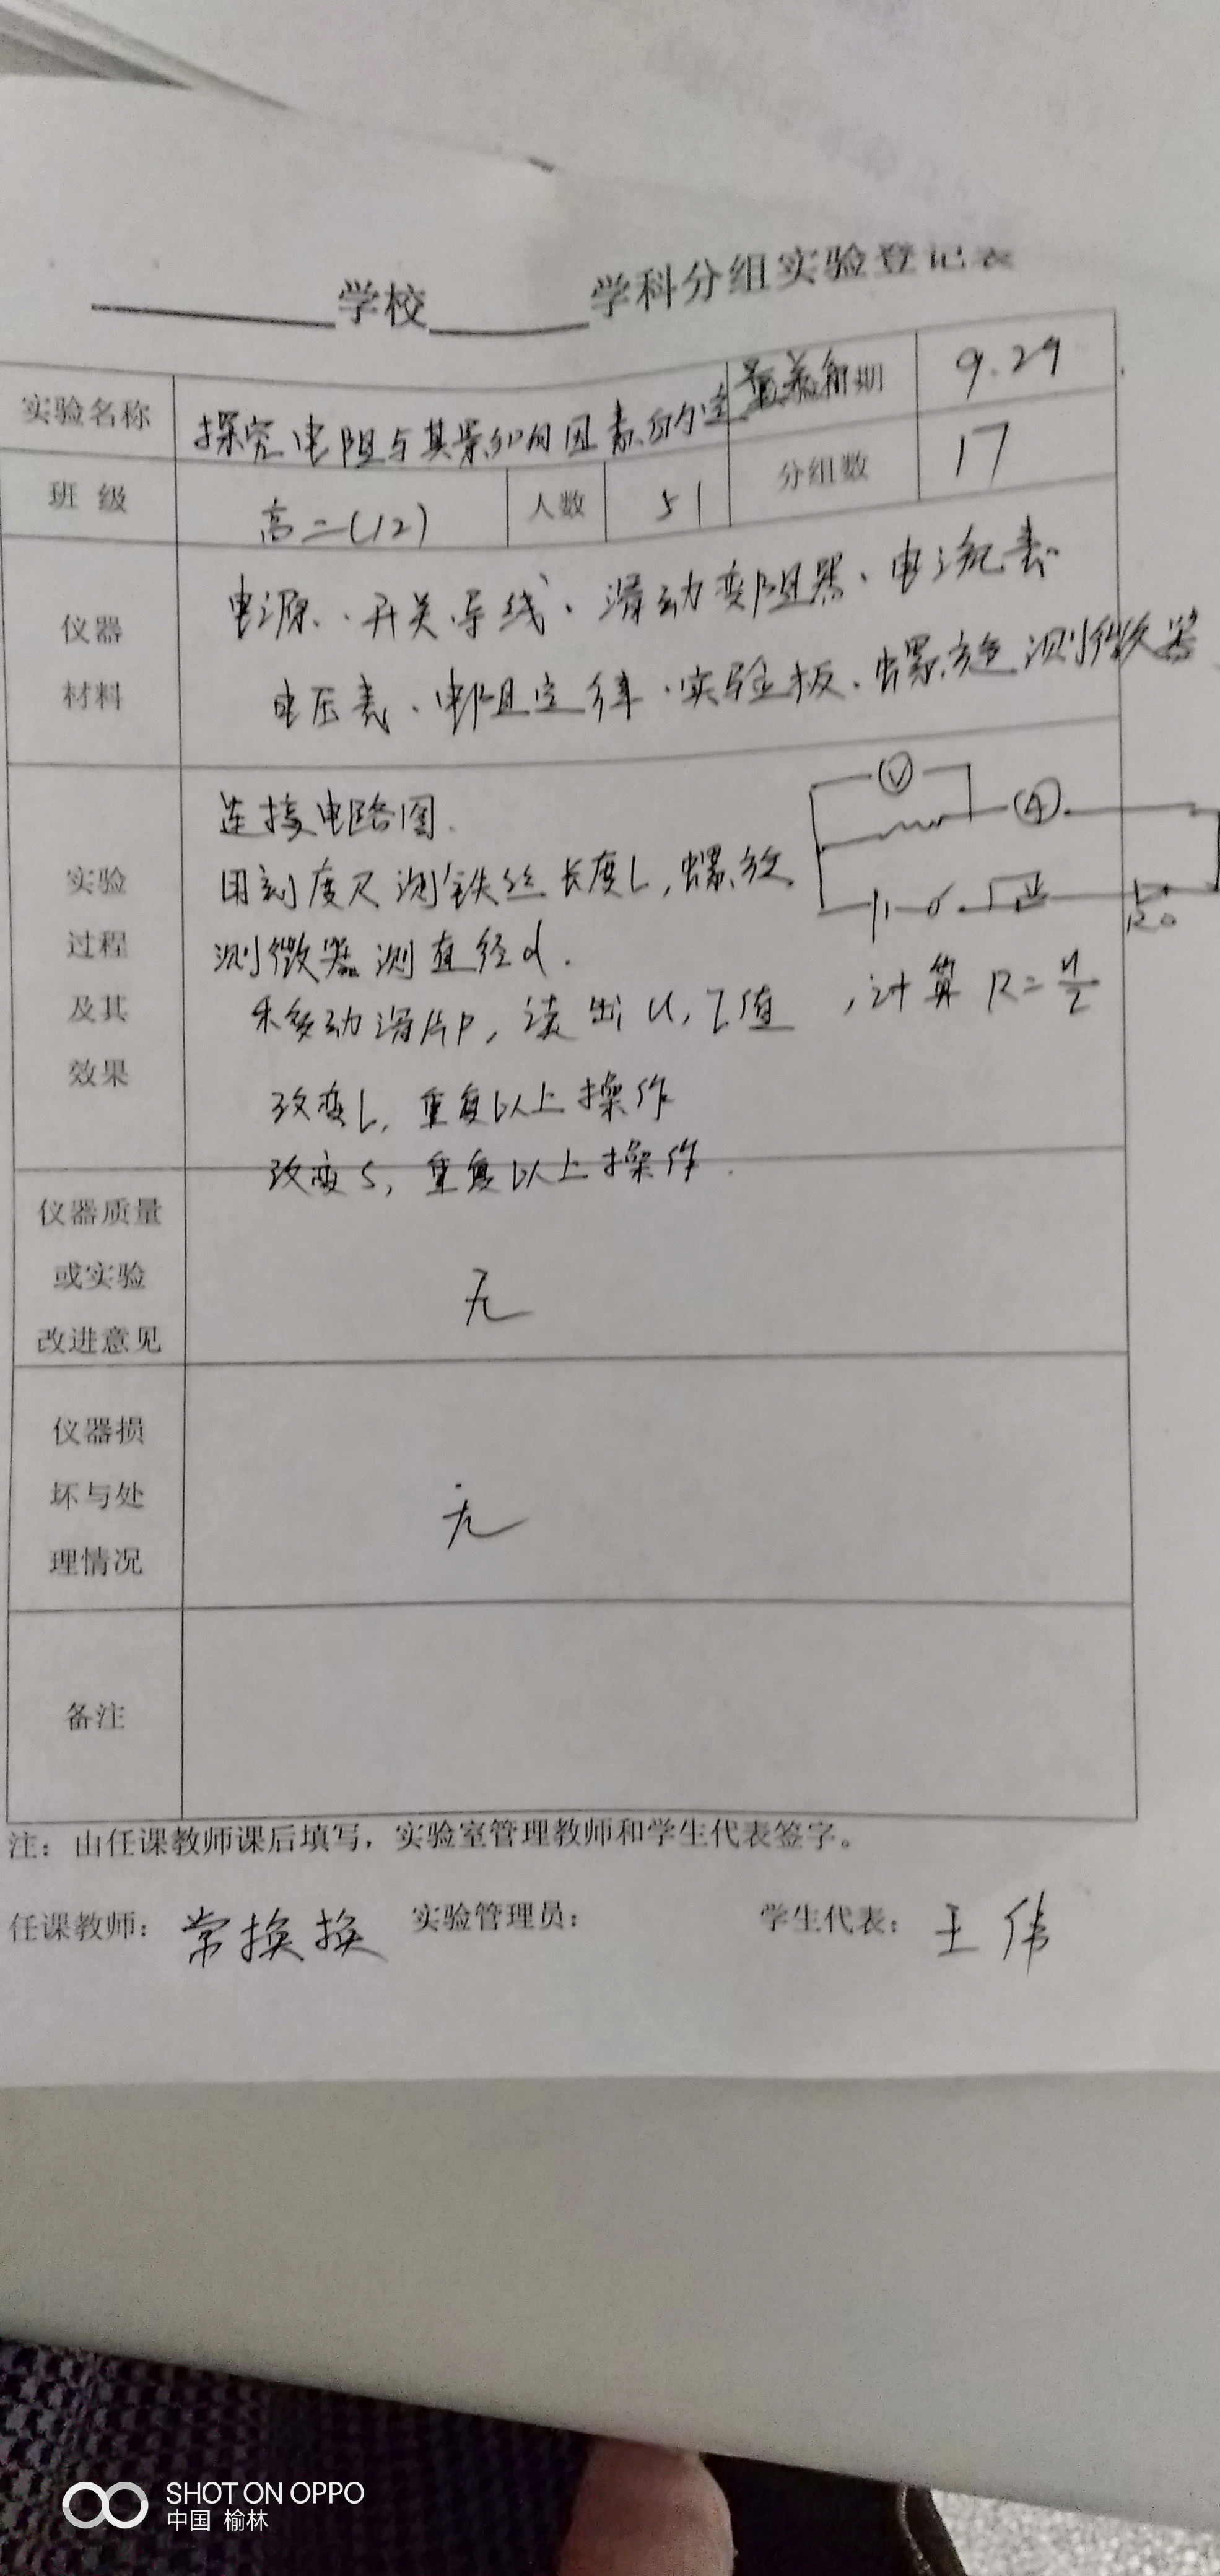 学校 学科分组实验登记表
实验名称 探究电阻与其影响因素的定量关系 日期 9.29
班 级 高二(12) 人数 51 分组数 17
仪器
材料
电源、开关导线、滑动变阻器、电流表
电压表、电阻定律、实验板、螺旋测微器
实验
过程
及其
效果
连接电路图.
V A
R0
用刻度尺测铁丝长度L,螺旋
测微器测直径d.
移动滑片P,读出U,I值,计算R=U/I
改变L,重复以上操作
改变S,重复以上操作.
仪器质量
或实验
改进意见
无
仪器损
坏与处
理情况
无
备注
注:由任课教师课后填写,实验室管理教师和学生代表签字。
任课教师: 常换换 实验管理员: 学生代表: 王伟
SHOT ON OPPO
中国 榆林